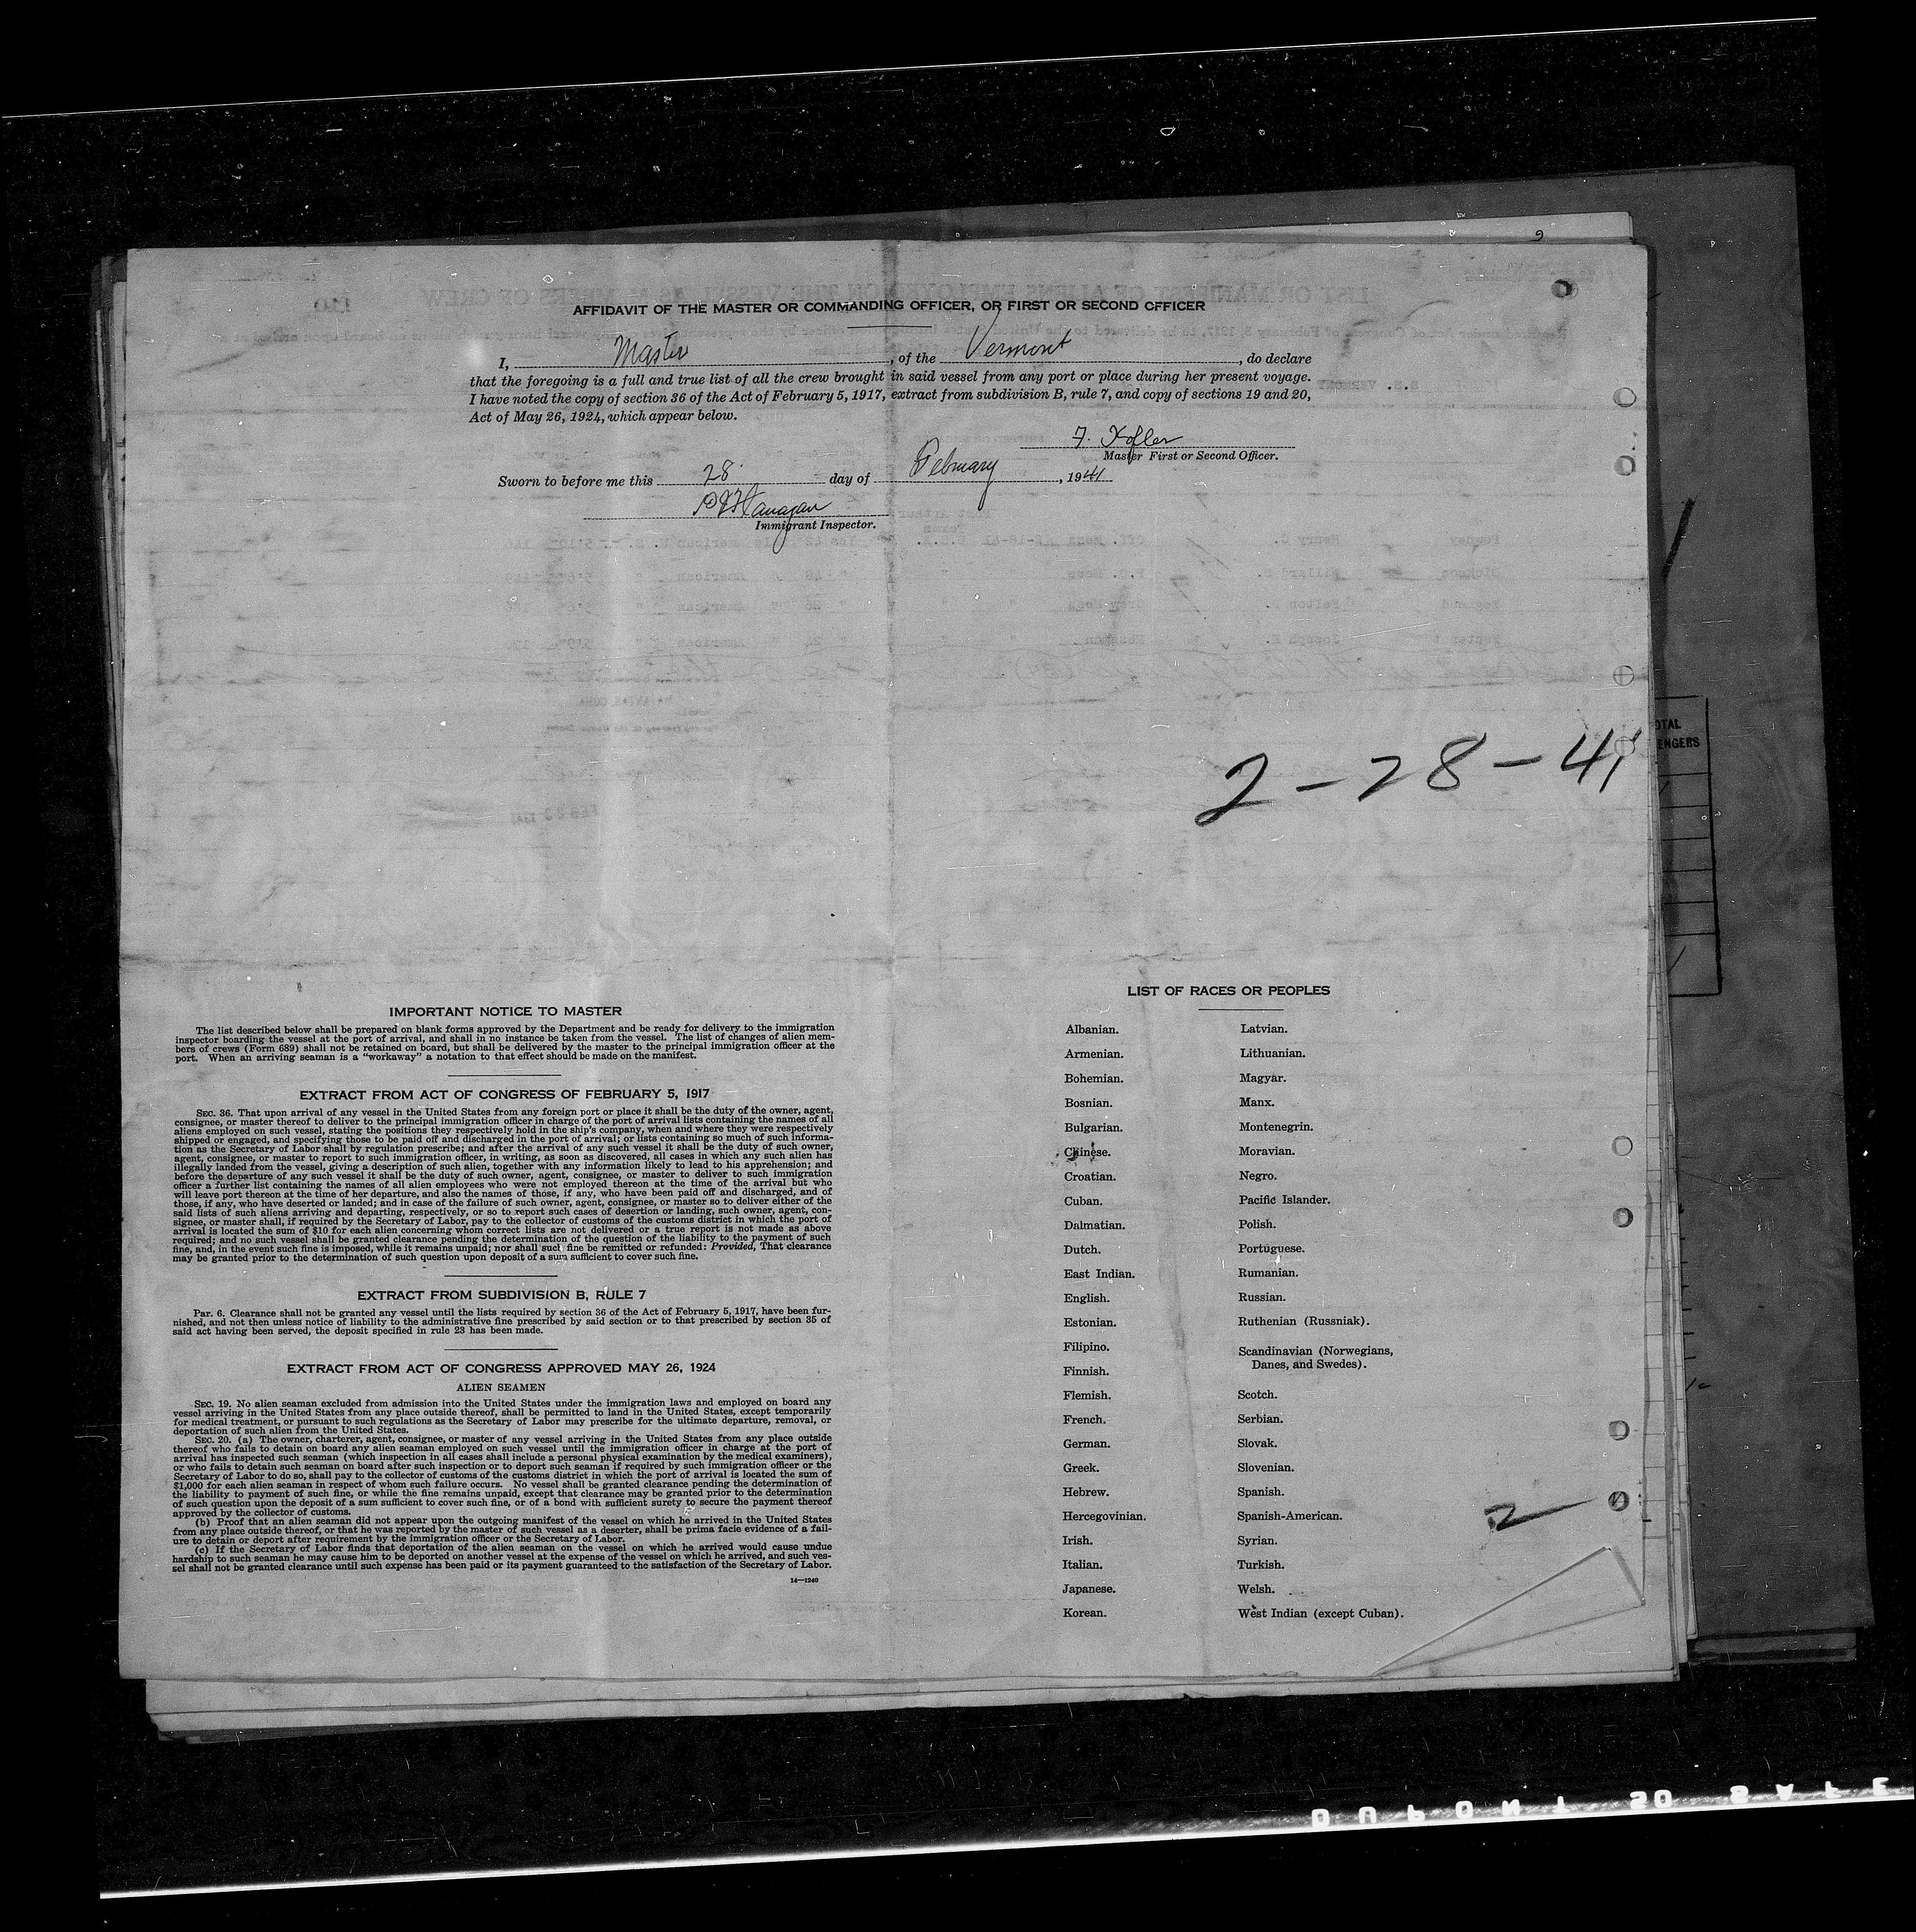 AFFIDAVIT OF THE MASTER OR COMMANDING OFFICER, OR FIRST OR SECOND OFFICER
I, Master, of the Vermont, do declare
that the foregoing is a full and true list of all the crew brought in said vessel from any port or place during her present voyage.
I have noted the copy of section 36 of the Act of February 5, 1917, extract from subdivision B, rule 7, and copy of sections 19 and 20,
Act of May 26, 1924, which appear below.
F.
Master First or Second Officer.
Sworn to before me this 28 day of February, 1941
Immigrant Inspector.
2-28-41
IMPORTANT NOTICE TO MASTER
The list described below shall be prepared on blank forms approved by the Department and be ready for delivery to the immigration
inspector boarding the vessel at the port of arrival, and shall in no instance be taken from the vessel. The list of changes of alien mem-
bers of crews (Form 689) shall not be retained on board, but shall be delivered by the master to the principal immigration officer at the
port. When an arriving seaman is a "workaway" a notation to that effect should be made on the manifest.
EXTRACT FROM ACT OF CONGRESS OF FEBRUARY 5, 1917
SEC. 36. That upon arrival of any vessel in the United States from any foreign port or place it shall be the duty of the owner, agent,
consignee, or master thereof to deliver to the principal immigration officer in charge of the port of arrival lists containing the names of all
aliens employed on such vessel, stating the positions they respectively hold in the ship's company, when and where they were respectively
shipped or engaged, and specifying those to be paid off and discharged in the port of arrival; or lists containing so much of such informa-
tion as the Secretary of Labor shall by regulation prescribe; and after the arrival of any such vessel it shall be the duty of such owner,
agent, consignee, or master to report to such immigration officer, in writing, as soon as discovered, all cases in which any such alien has
illegally landed from the vessel, giving a description of such alien, together with any information likely to lead to his apprehension; and
before the departure of any such vessel it shall be the duty of such owner, agent, consignee, or master to deliver to such immigration
officer a further list containing the names of all alien employees who were not employed thereon at the time of the arrival but who
will leave port thereon at the time of her departure, and also the names of those, if any, who have been paid off and discharged, and of
those, if any, who have deserted or landed; and in case of the failure of such owner, agent, consignee, or master so to deliver either of the
said lists of such aliens arriving and departing, respectively, or so to report such cases of desertion or landing, such owner, agent, con-
signee, or master shall, if required by the Secretary of Labor, pay to the collector of customs of the customs district in which the port of
arrival is located the sum of $10 for each alien concerning whom correct lists are not delivered or a true report is not made as above
required; and no such vessel shall be granted clearance pending the determination of the question of the liability to the payment of such
fine, and, in the event such fine is imposed, while it remains unpaid; nor shall such fine be remitted or refunded: Provided, That clearance
may be granted prior to the determination of such question upon deposit of a sum sufficient to cover such fine.
EXTRACT FROM SUBDIVISION B, RULE 7
Par. 6. Clearance shall not be granted any vessel until the lists required by section 36 of the Act of February 5, 1917, have been fur-
nished, and not then unless notice of liability to the administrative fine prescribed by said section or to that prescribed by section 35 of
said act having been served, the deposit specified in rule 23 has been made.
EXTRACT FROM ACT OF CONGRESS APPROVED MAY 26, 1924
ALIEN SEAMEN
SEC. 19. No alien seaman excluded from admission into the United States under the immigration laws and employed on board any
vessel arriving in the United States from any place outside thereof, shall be permitted to land in the United States, except temporarily
for medical treatment, or pursuant to such regulations as the Secretary of Labor may prescribe for the ultimate departure, removal, or
deportation of such alien from the United States.
SEC. 20. (a) The owner, charterer, agent, consignee, or master of any vessel arriving in the United States from any place outside
thereof who fails to detain on board any alien seaman employed on such vessel until the immigration officer in charge at the port of
arrival has inspected such seaman (which inspection in all cases shall include a personal physical examination by the medical examiners),
or who fails to detain such seaman on board after such inspection or to deport such seaman if required by such immigration officer or the
Secretary of Labor to do so, shall pay to the collector of customs of the customs district in which the port of arrival is located the sum of
$1,000 for each alien seaman in respect of whom such failure occurs. No vessel shall be granted clearance pending the determination of
the liability to payment of such fine, or while the fine remains unpaid, except that clearance may be granted prior to the determination
of such question upon the deposit of a sum sufficient to cover such fine, or of a bond with sufficient surety to secure the payment thereof
approved by the collector of customs.
(b) Proof that an alien seaman did not appear upon the outgoing manifest of the vessel on which he arrived in the United States
from any place outside thereof, or that he was reported by the master of such vessel as a deserter, shall be prima facie evidence of a fail-
ure to detain or deport after requirement by the immigration officer or the Secretary of Labor.
(c) If the Secretary of Labor finds that deportation of the alien seaman on the vessel on which he arrived would cause undue
hardship to such seaman he may cause him to be deported on another vessel at the expense of the vessel on which he arrived, and such ves-
sel shall not be granted clearance until such expense has been paid or its payment guaranteed to the satisfaction of the Secretary of Labor.
14—1240
LIST OF RACES OR PEOPLES
Albanian.
Armenian.
Bohemian.
Bosnian.
Bulgarian.
Chinese.
Croatian.
Cuban.
Dalmatian.
Dutch.
East Indian.
English.
Estonian.
Filipino.
Finnish.
Flemish.
French.
German.
Greek.
Hebrew.
Hercegovinian.
Irish.
Italian.
Japanese.
Korean.
Latvian.
Lithuanian.
Magyar.
Manx.
Montenegrin.
Moravian.
Negro.
Pacific Islander.
Polish.
Portuguese.
Rumanian.
Russian.
Ruthenian (Russniak).
Scandinavian (Norwegians,
Danes, and Swedes).
Scotch.
Serbian.
Slovak.
Slovenian.
Spanish.
Spanish-American.
Syrian.
Turkish.
Welsh.
West Indian (except Cuban).
2